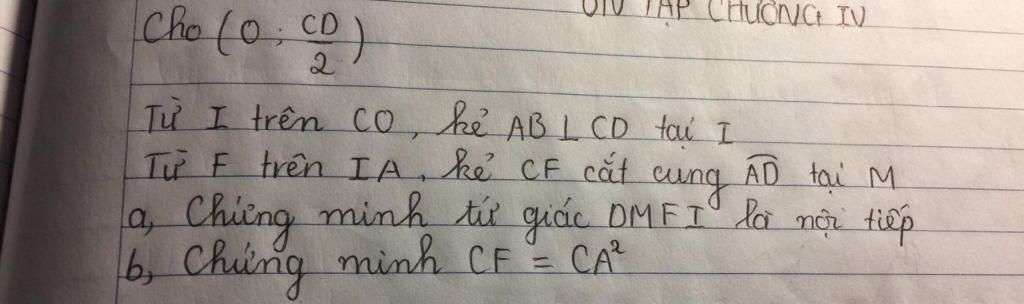 ÔN TẬP CHƯƠNG IV
Cho (O; CD/2)
Từ I trên CO, kẻ AB ⊥ CD tại I
Từ F trên IA, kẻ CF cắt cung AD tại M
a, Chứng minh tứ giác DMFI là nội tiếp
b, Chứng minh CF = CA²